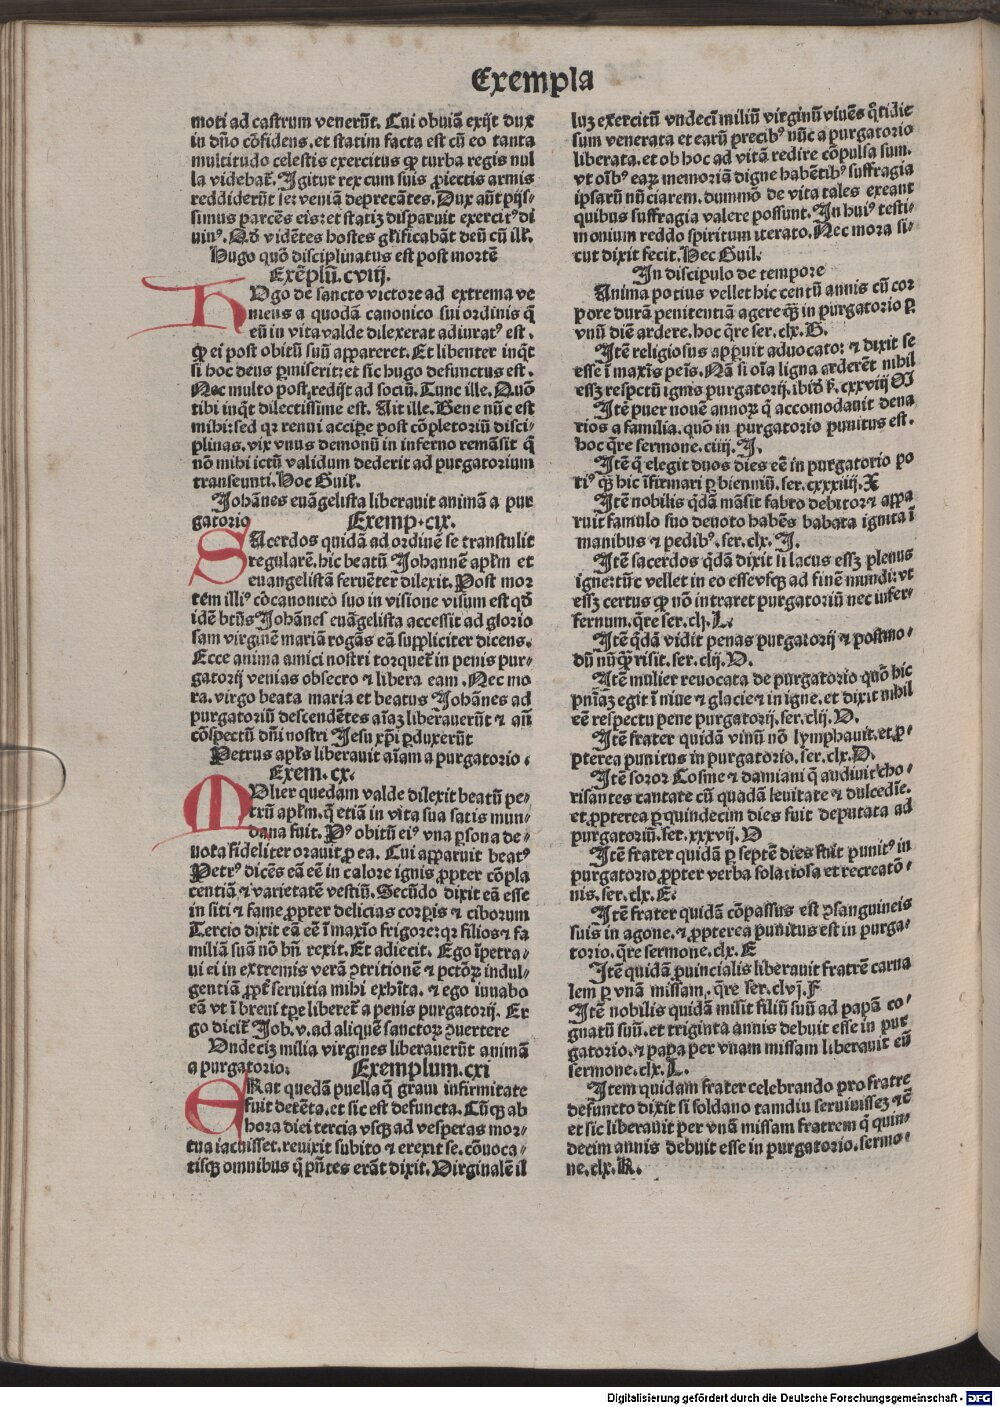 Exempla
moti ad castrum venerūt. Cui obuiā exijt dux
in dn̄o cōfidens. et statim facta est cū eo tanta
multitudo celestis exercitus ꝙ turba regis nul
la videbat̄. Igitur rex cum suis ꝓiectis armis
reddiderūt se: veniā deprecātes. Dux aūt pijs-
simus parcēs eis: et statiꝫ disparuit exercitꝰ di
uinꝰ. Qd̄ vidētes hostes gl̄ificabāt deū cū ill̄.
Hugo quō disciplinatus est post mortē
Exēplū. cviij.
HVgo de sancto victore ad extrema ve
niens a quodā canonico sui ordinis q̄
eū in vita valde dilexerat adiuratꝰ est.
ꝙ ei post obitū suū appareret. Et libenter inq̄t
si hoc deus ꝑmiserit: et sic hugo defunctus est.
Nec multo post. redijt ad sociū. Tunc ille. Quō
tibi inq̄t dilectissime est. Ait ille. Bene nūc est
mihi: sed qꝛ rennui accipe post cōpletoriū disci-
plinas. vix vnus demonū in inferno remāsit q̄
nō mihi ictū validum dederit ad purgatorium
transeunti. Hoc Guil̄.
Johānes euāgelista liberauit animā a pur
gatorio Exemp. cix.
SAcerdos quidā ad ordinē se transtulit
regularē. hic beatū Johannē apl̄m et
euangelistā feruēter dilexit. Post mor
tem illiꝰ cōcanonico suo in visione visum est qd̄
idē btūs Johānes euāgelista accessit ad glorio
sam virginē mariā rogās eā suppliciter dicens.
Ecce anima amici nostri torquet̄ in penis pur-
gatorij venias obsecro ⁊ libera eam. Nec mo
ra. virgo beata maria et beatus Johānes ad
purgatoriū descendētes aīaꝫ liberauerūt ⁊ aū
cōspectū dn̄i nostri Jesu xp̄i ꝑduxerūt
Petrus apl̄s liberauit aīam a purgatorio.
Exem. cx.
MVlier quedam valde dilexit beatū pe-
trū apl̄m. q̄ etiā in vita sua satis mun-
dana fuit. Pꝰ obitū eiꝰ vna ꝑsona de-
uota fideliter orauit ꝓ ea. Cui apparuit beatꝰ
Petrꝰ dicēs eā eē in calore ignis ꝓpter cōpla
centiā ⁊ varietatē vestiū. Secūdo dixit eā esse
in siti ⁊ fame ꝓpter delicias corꝑis ⁊ ciborum
Tercio dixit eā eē ī maxīo frigore: qꝛ filios ⁊ fa
miliā suā nō bn̄ rexit. Et adiecit. Ego īpetra-
ui ei in extremis verā ꝯtritionē ⁊ pctōꝝ indul-
gentiā ꝓpt̄ seruitia mihi exhīta. ⁊ ego iuuabo
eā vt ī breui tꝑe liberet̄ a penis purgatorij. Er
go dicit̄ Job. v. ad aliquē sanctoꝝ ꝯuertere
Vndeciꝫ milia virgines liberauerūt animā
a purgatorio: Exemplum. cxi
ERat quedā puella q̄ graui infirmitate
fuit detēta. et sic est defuncta. Cūqꝫ ab
hora diei tercia vsqꝫ ad vesperas mor-
tua iacuisset. reuixit subito ⁊ erexit se. cōuoca-
tisqꝫ omnibus q̄ pn̄tes erāt dixit. Virginalē il
luꝫ exercitū vndeci miliū virginū viuēs q̄tidie
sum venerata et earū precibꝰ nūc a purgatorio
liberata. et ob hoc ad vitā redire cōpulsa sum.
vt oībꝰ eaꝝ memoriā digne habētibꝰ suffragia
ipsarū nūciarem. dummō de vita tales exeant
quibus suffragia valere possunt. In huiꝰ testi-
monium reddo spiritum iterato. Nec mora si-
cut dixit fecit. Hec Guil.
In discipulo de tempore
Anima potius vellet hic centū annis cū cor
pore durā penitentiā agere qꝫ in purgatorio ꝑ
vnū diē ardere. hoc q̄re ser. clx. G.
Itē religiosus apparuit aduocato: ⁊ dixit se
esse ī maxīs peīs. Nā si oīa ligna arderēt nihil
esseꝫ respctū ignis purgatorij. ibid̄ ẜ. cxxviij
Itē puer nouē annoꝝ q̄ accomodauit dena
rios a familia. quō in purgatorio punitus est.
hoc q̄re sermone. ciiij. J.
Itē q̄ elegit duos dies eē in purgatorio po
tiꝰ qꝫ hic īfirmari ꝑ bienniū. ser. cxxxiiij. X
Itē nobilis q̄dā māsit fabro debitor ⁊ appa
ruit famulo suo deuoto habēs babata ignita ī
manibus ⁊ pedibꝰ. ser. clx. J.
Itē sacerdos q̄dā dixit si lacus esseꝫ plenus
igne: tūc vellet in eo esse vsqꝫ ad finē mundi: vt
esseꝫ certus ꝙ nō intraret purgatoriū nec infer-
fernum. q̄re ser. clj. L.
Itē q̄dā vidit penas purgatorij ⁊ postmo-
dū nūqꝫ risit. ser. clij. D.
Itē mulier reuocata de purgatorio quō hic
pnīaꝫ egit ī niue ⁊ glacie ⁊ in igne. et dixit nihil
eē respectu pene purgatorij. ser. clij. D.
Itē frater quidā vinū nō lymphauit. et ꝓ-
pterea punitus in purgatorio. ser. clx. D.
Itē soror Cosme ⁊ damiani q̄ audiuit cho-
risantes cantare cū quadā leuitate ⁊ dulcedīe.
et ꝓpterea ꝑ quindecim dies fuit deputata ad
purgatoriū. ser. xxxvij. D
Itē frater quidā ꝑ septē dies fuit punitꝰ in
purgatorio ꝓpter verba solatiosa et recreatō-
nis. ser. clx. E.
Itē frater quidā cōpassus est ꝯsanguineis
suis in agone. ⁊ ꝓpterea punitus est in purga-
torio. q̄re sermone. clx. E
Itē quidā ꝓuincialis liberauit fratrē carna
lem ꝑ vnā missam. q̄re ser. clvj. F
Itē nobilis quidā misit filiū suū ad papā co-
gnatū suū. et triginta annis debuit esse in pur
gatorio. ⁊ papa per vnam missam liberauit eū
sermone. clx. L.
Item quidam frater celebrando pro fratre
defuncto dixit si soldano tamdiu seruiuisseꝫ ⁊c̄
et sic liberauit per vnā missam fratrem q̄ quin-
decim annis debuit esse in purgatorio. sermo-
ne. clx. K.
Digitalisierung gefördert durch die Deutsche Forschungsgemeinschaft - DFG